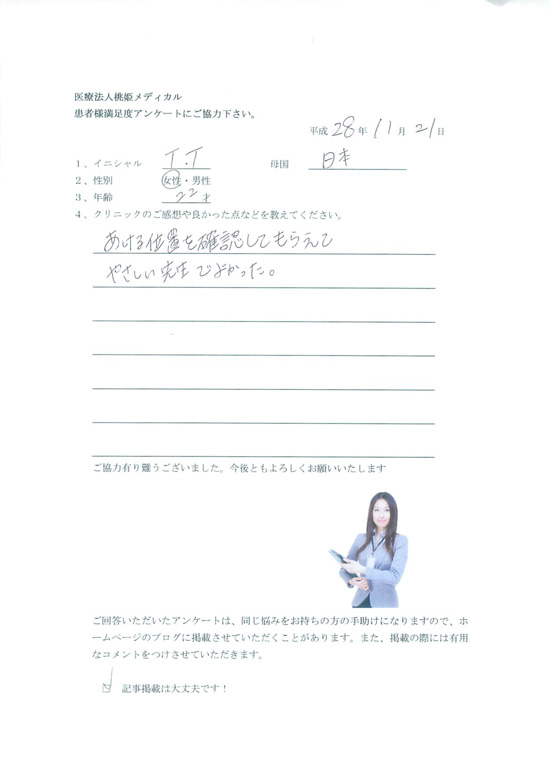 医療法人桃姫メディカル
患者様満足度アンケートにご協力下さい。
平成 28 年 11 月 21 日
1、イニシャル T.T 母国 日本
2、性別 女性・男性
3、年齢 22才
4、クリニックのご感想や良かった点などを教えてください。
あける位置を確認してもらえて
やさしい先生でよかった。
ご協力有り難うございました。今後ともよろしくお願いいたします
ご回答いただいたアンケートは、同じ悩みをお持ちの方の手助けになりますので、ホ
ームページのブログに掲載させていただくことがあります。また、掲載の際には有用
なコメントをつけさせていただきます。
☑ 記事掲載は大丈夫です！